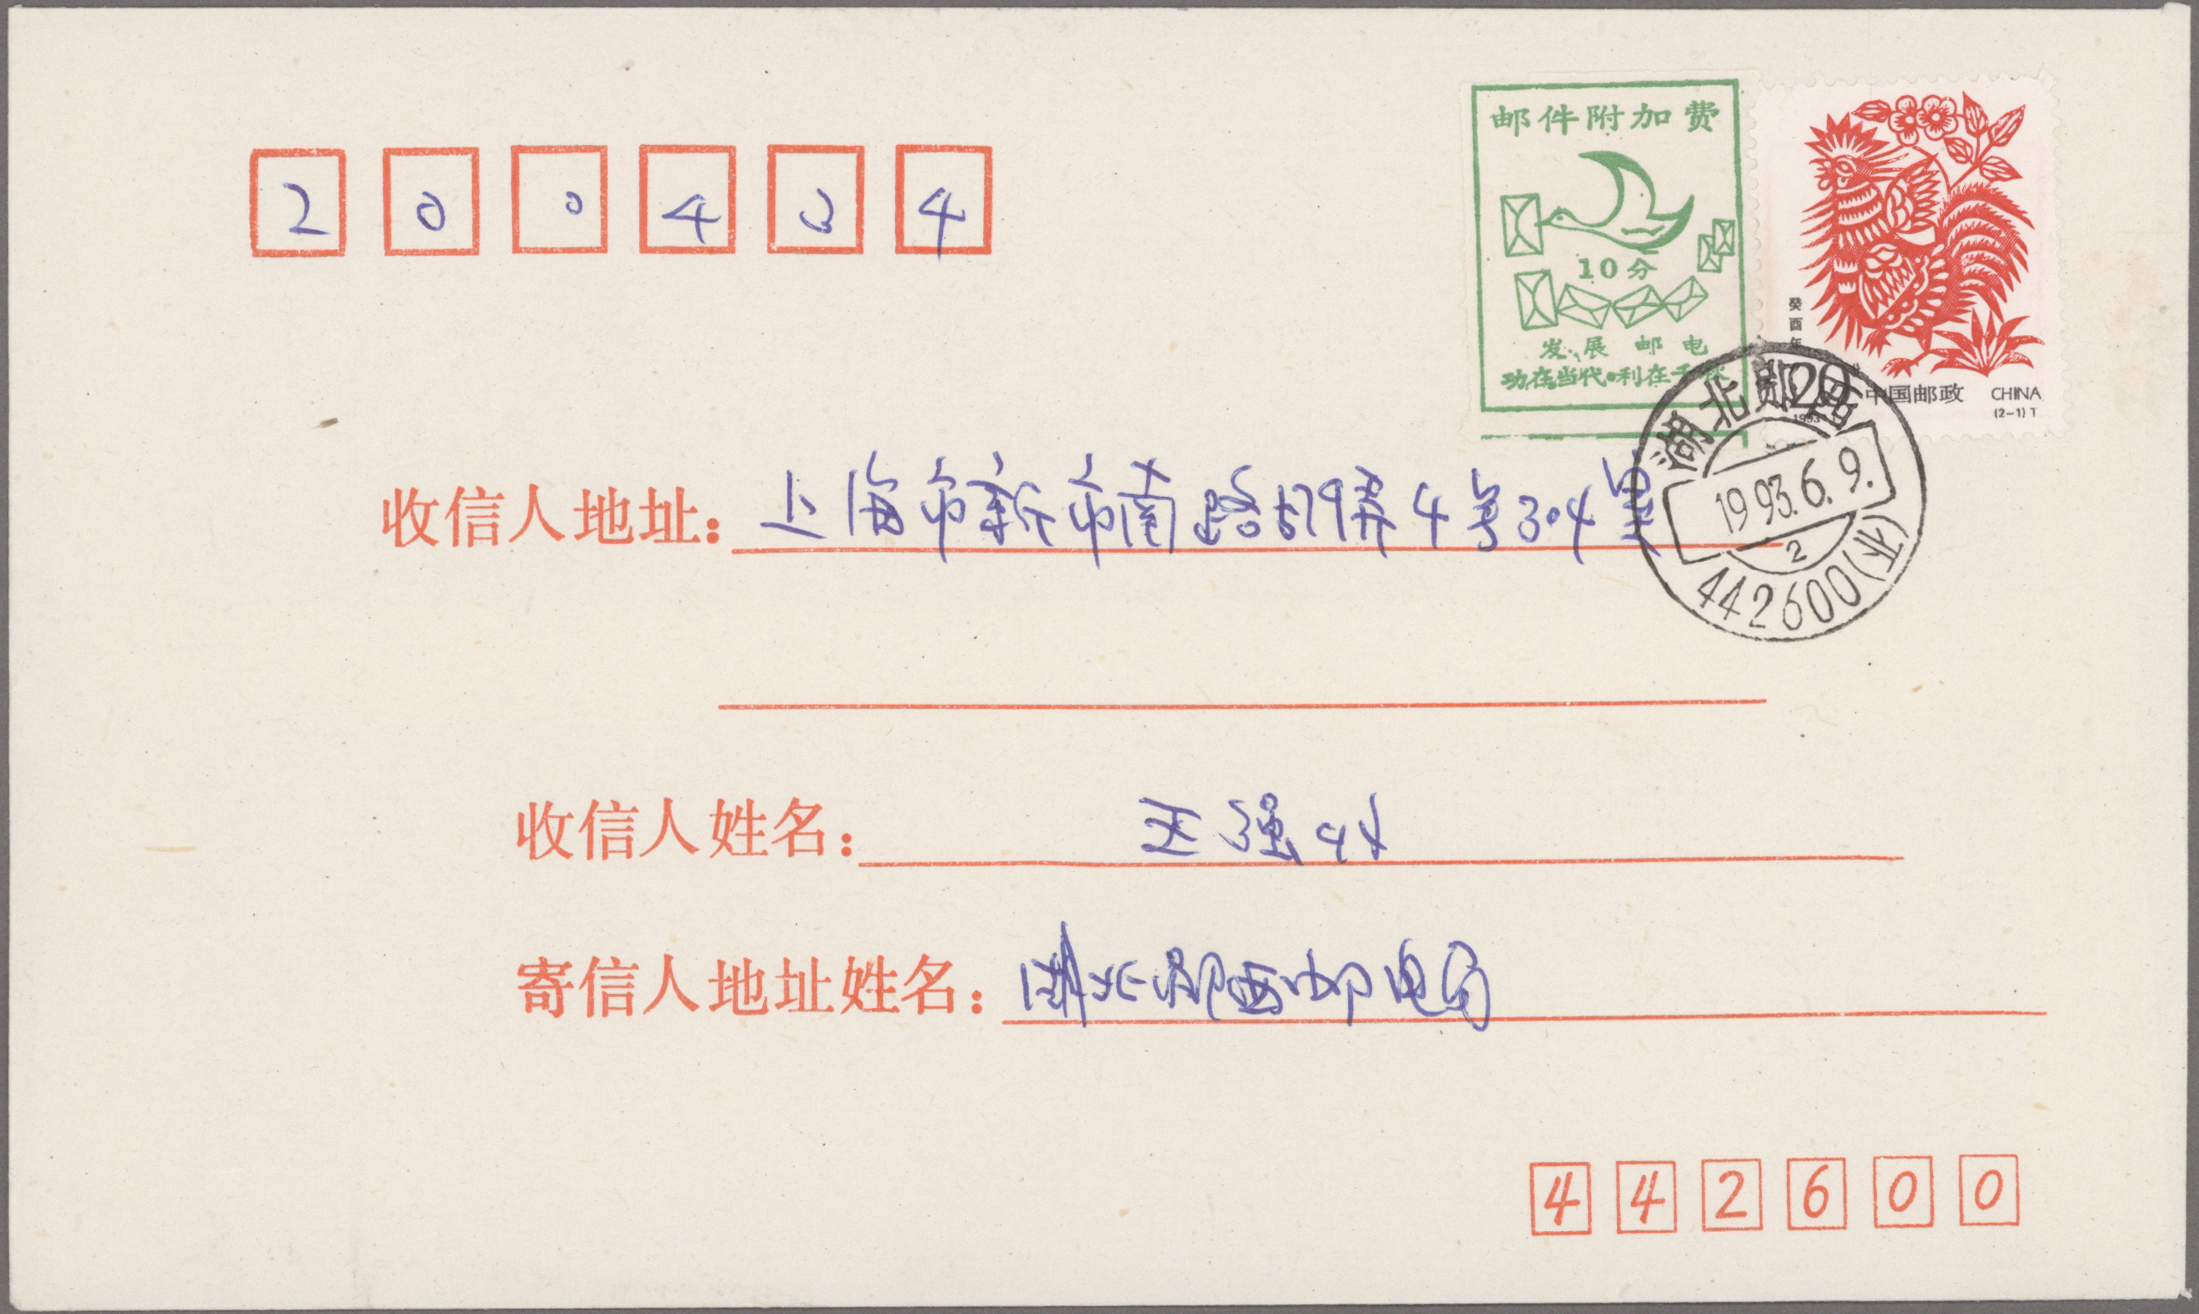 200434
邮件附加费
10分
发展邮电
功在当代·利在千秋
癸酉年
20分
中国邮政 CHINA
1993 (2-1)T
湖北郧西
1993.6.9.
2
442600(业)
收信人地址:上海市新市南路579弄4号304室
收信人姓名:王强
寄信人地址姓名:湖北郧西邮电局
442600